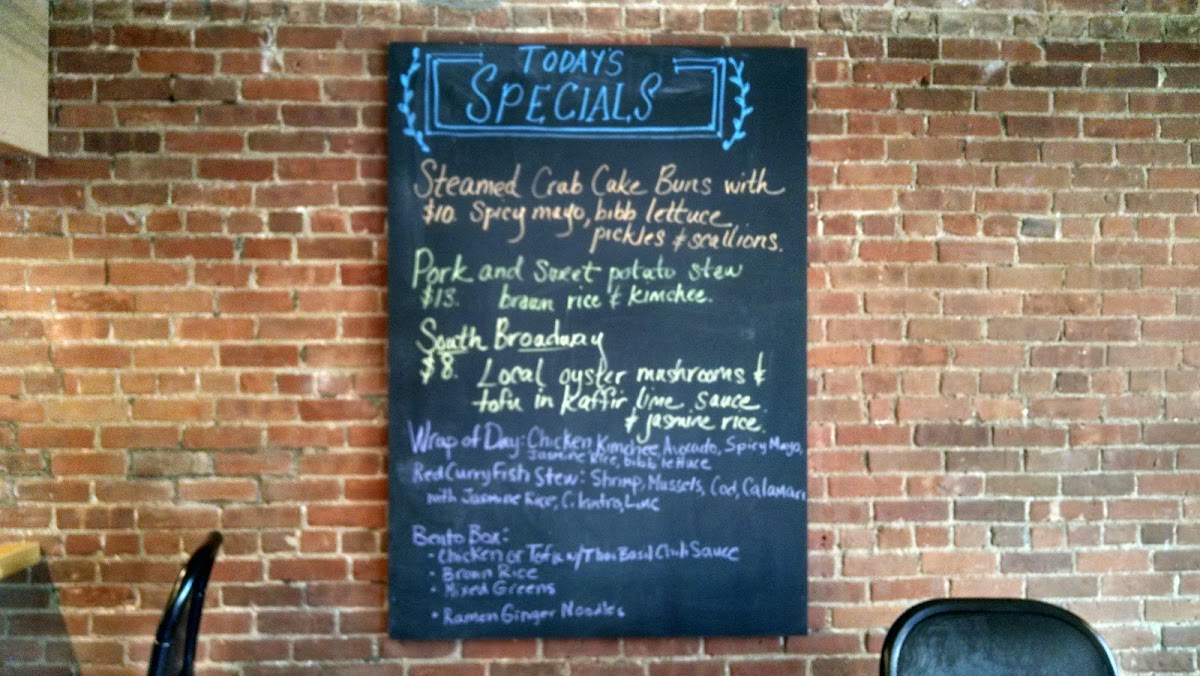 TODAY'S
SPECIALS
Steamed Crab Cake Buns with
$10. Spicy mayo, bibb lettuce
pickles & scallions.
Pork and Sweet potato stew
$13. brown rice & kimchee.
South Broadway
$8. Local oyster mushrooms &
tofu in Kaffir lime sauce
& jasmine rice.
Wrap of Day: Chicken, Kimchee, Avocado, Spicy Mayo,
Jasmine Rice, bibb lettuce
Red Curry Fish Stew: Shrimp, Mussels, Cod, Calamari
with Jasmine Rice, Cilantro, Lime
Bento Box:
• Chicken or Tofu w/ Thai Basil Chili Sauce
• Brown Rice
• Mixed Greens
• Ramen Ginger Noodles